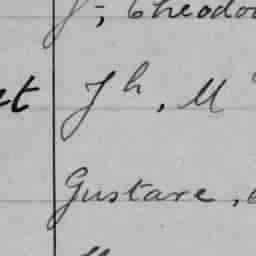 J-, Theodo
et Jh, M
Gustave,